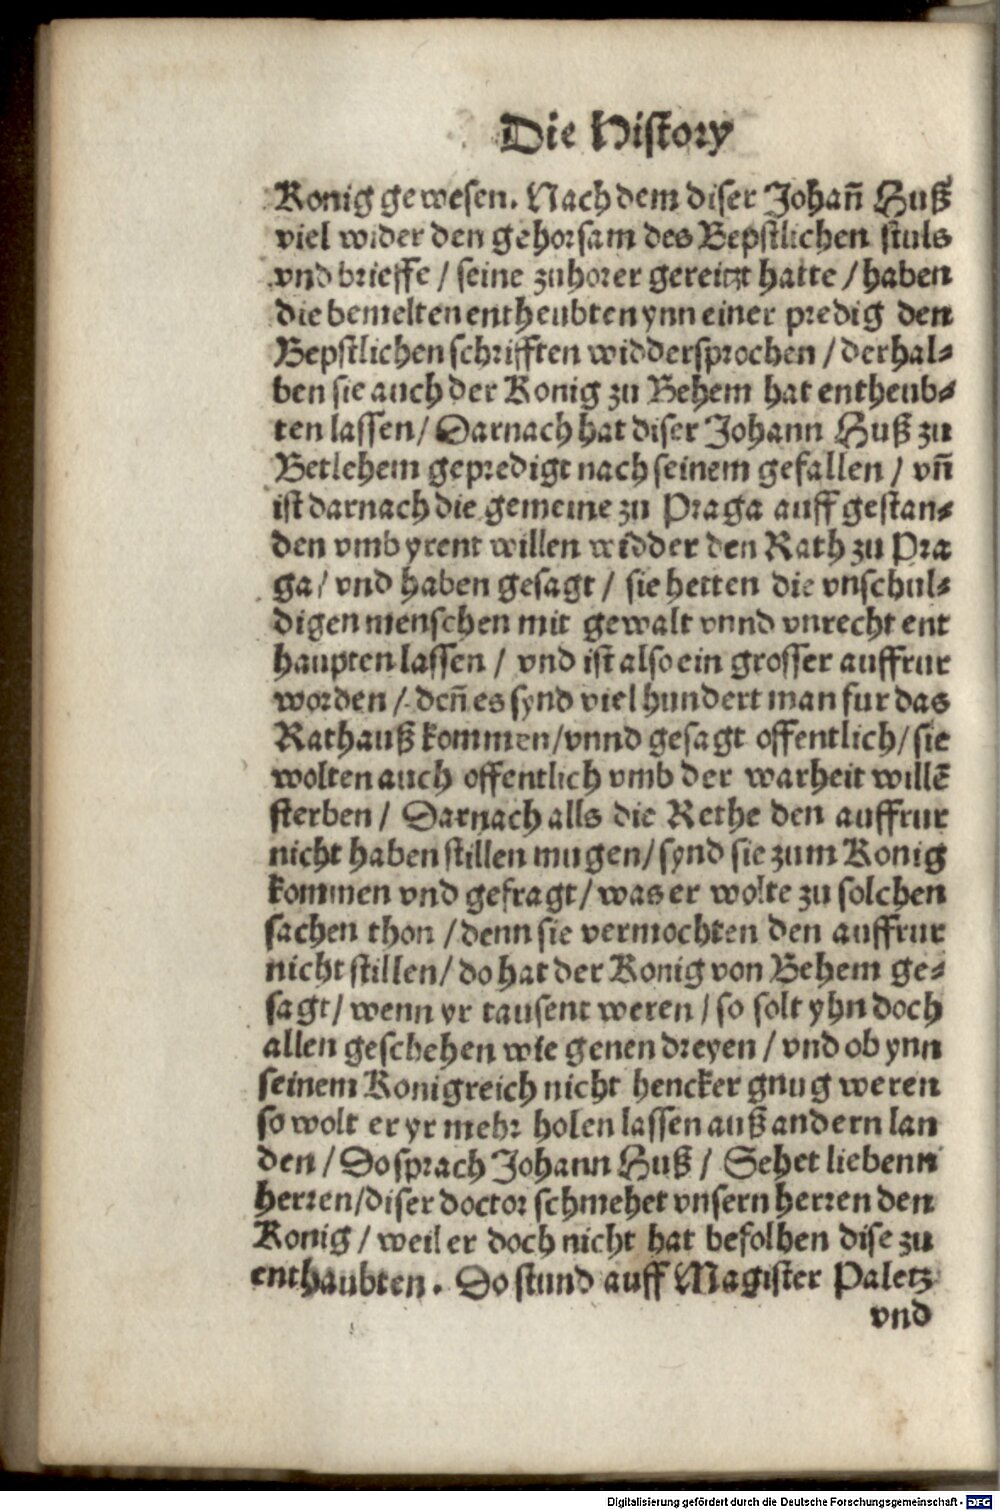 Die History
Konig gewesen. Nach dem diser Johañ Huß
viel wider den gehorsam des Bepstlichen stuls
vnd brieffe / seine zuhorer gereitzt hatte / haben
die bemelten entheubten ynn einer predig den
Bepstlichen schrifften widdersprochen / derhal-
ben sie auch der Konig zu Behem hat entheub-
ten lassen / Darnach hat diser Johann Huß zu
Betlehem gepredigt nach seinem gefallen / vñ
ist darnach die gemeine zu Praga auff gestan-
den vmb yrent willen widder den Rath zu Pra
ga / vnd haben gesagt / sie hetten die vnschul-
digen menschen mit gewalt vnnd vnrecht ent
haupten lassen / vnd ist also ein grosser auffrur
worden / deñ es synd viel hundert man fur das
Rathauß kommen / vnnd gesagt offentlich / sie
wolten auch offentlich vmb der warheit willē
sterben / Darnach alls die Rethe den auffrur
nicht haben stillen mugen / synd sie zum Konig
kommen vnd gefragt / was er wolte zu solchen
sachen thon / denn sie vermochten den auffrur
nicht stillen / do hat der Konig von Behem ge-
sagt / wenn yr tausent weren / so solt yhn doch
allen geschehen wie genen dreyen / vnd ob ynn
seinem Konigreich nicht hencker gnug weren
so wolt er yr mehr holen lassen auß andern lan
den / Do sprach Johann Huß / Sehet liebenn
herren / diser doctor schmehet vnsern herren den
Konig / weil er doch nicht hat befolhen dise zu
enthaubten. Do stund auff Magister Paletz
vnd
Digitalisierung gefördert durch die Deutsche Forschungsgemeinschaft - DFG